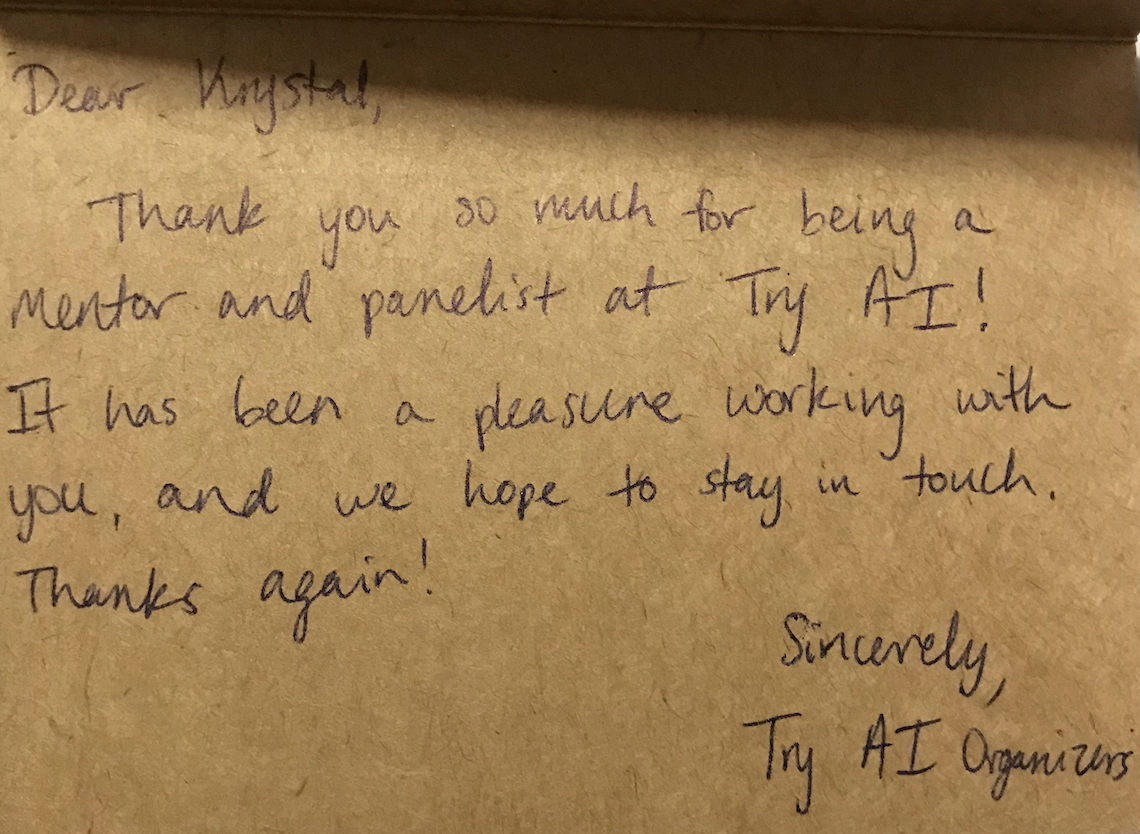 Dear Krystal,
Thank you so much for being a
mentor and panelist at Try AI!
It has been a pleasure working with
you, and we hope to stay in touch.
Thanks again!
Sincerely,
Try AI Organizers